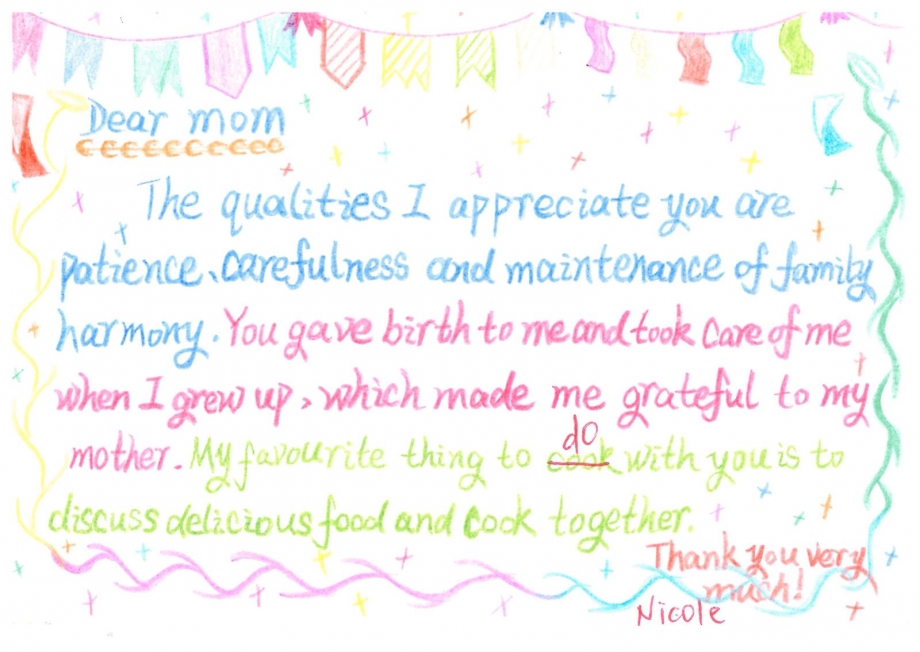 Dear mom
The qualities I appreciate you are
patience、carefulness and maintenance of family
harmony. You gave birth to me and took care of me
when I grew up, which made me grateful to my
mother. My favourite thing to cook do with you is to
discuss delicious food and cook together.
Thank you very
much!
Nicole